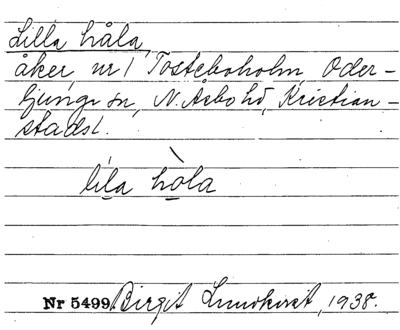 Lilla håla,
åker, nr 1 Tosteboholm, Oder-
ljunga sn, N. Åsbo hd, Kristian-
stads l.
lila hola
Nr 5499 Birgit Lundkvist, 1938.